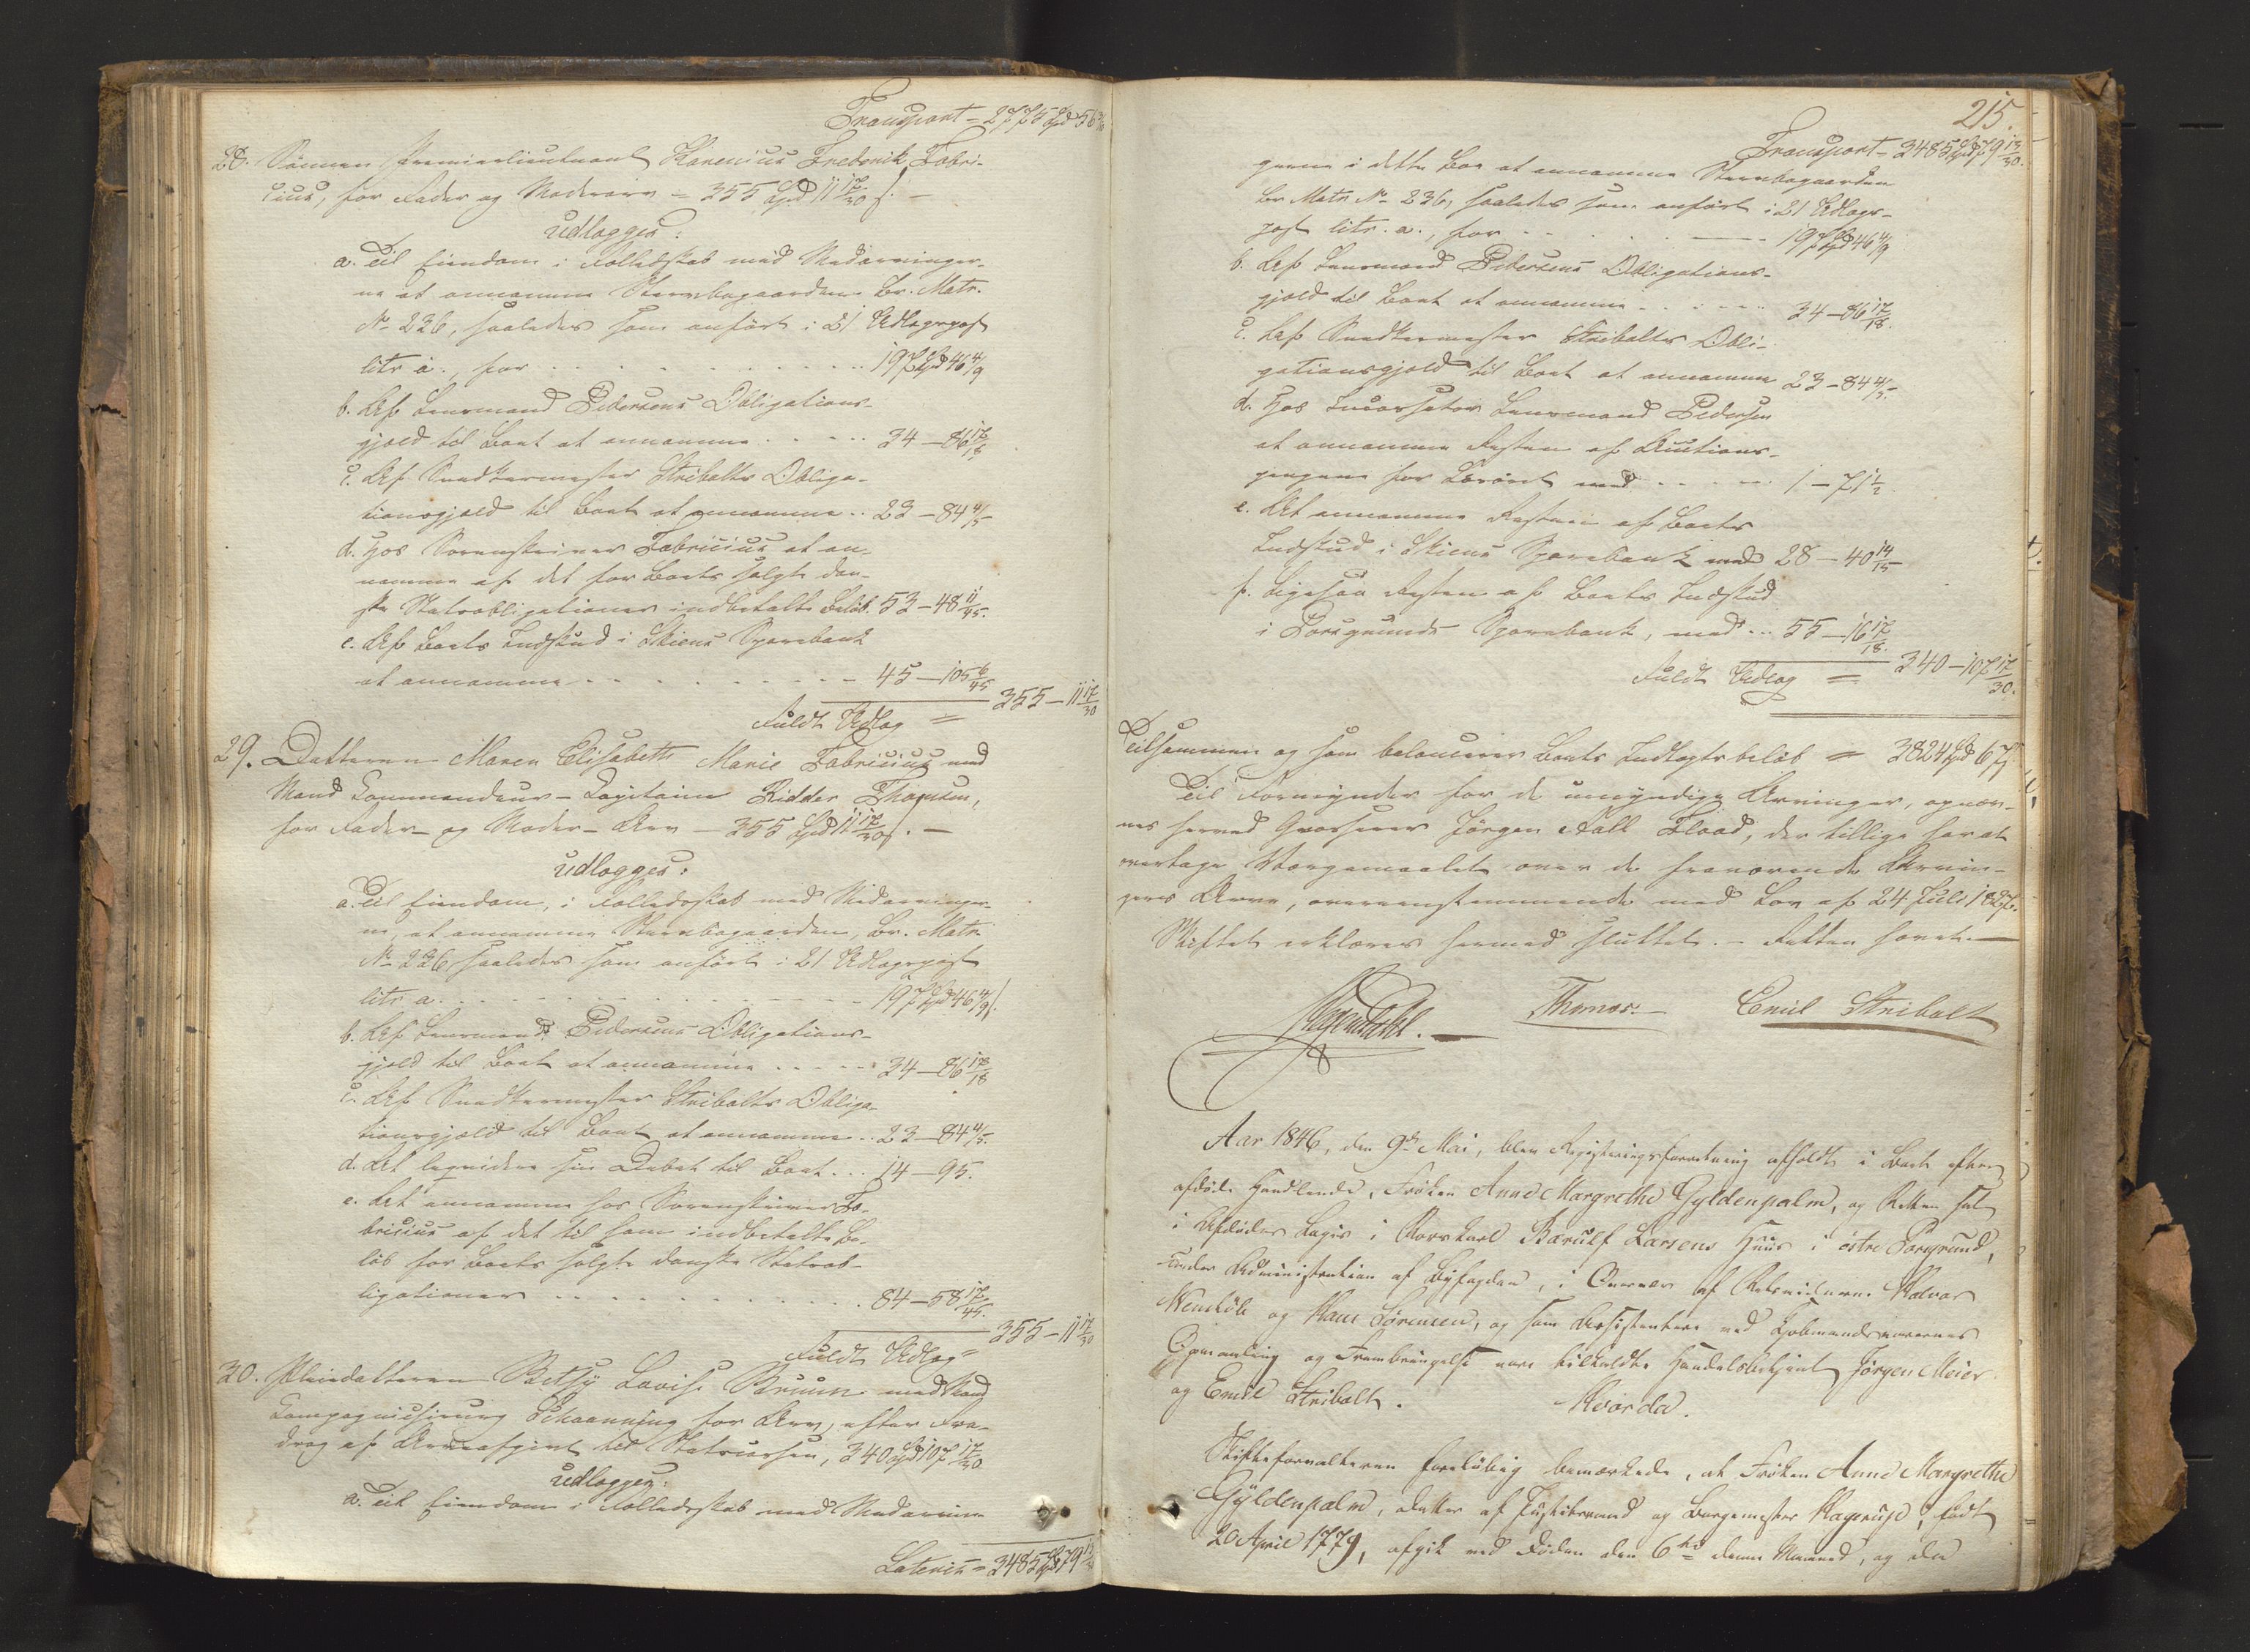 Transport = 2775 Spd 56
28. Sönnen Premierlieutnant Severinus Frederik Fabri-
cius, for Fader og Moderarv = 355 Spd 11 17/30 s. —
udlægges:
a. Til Eiendom i Fælledskab med Medarvinger-
ne at annamme Steenbogaarden Br. Matr.
No 236, saaledes som anført i 21 Udlægspost
litr a., for . . . 197 Spd 46 4/9
b. Af Lensmand Pedersens Obligations-
gjæld til Boet at annamme . . . 34 – 86 17/18
c. Af Snedkermester Stribolts Obliga-
tionsgjæld til Boet at annamme . . 23 – 84 4/5
d. Hos Sorenskriver Fabricius at an-
namme af det for Boets solgte dan-
ske Statsobligationer indbetalte Beløb. 53 – 48 11/45.
e. Af Boets Indskud i Skiens Sparebank
at annamme . . . 45 – 105 6/45
Fuldt Udlæg = 355 – 11 17/30
29. Datteren Maren Elisabeth Marie Fabricius med
Mand Commandeur-Capitaine Ridder Thomsen,
for Fader- og Moder-Arv — 355 Spd 11 17/30 s. —
udlægges:
a. Til Eiendom, i Fælledsskab med Medarvinger-
ne, at annamme Steenbogaarden, Br. Matr.
No 236, saaledes som anført i 21 Udlægspost
litr a. . . . 197 Spd 46 4/9 s.
b. Af Lensmand Pedersens Obligations-
gjæld til Boet at annamme . . . 34 – 86 17/18
c. Af Snedkermester Stribolts Obliga-
tionsgjæld til Boet at annamme . . 23 – 84 4/5.
d. At liqvidere sin Debet til Boet . . . 14 – 95.
e. At annamme hos Sorenskriver Fa-
bricius af det til ham indbetalte Be-
løb for Boets solgte danske Statsob-
ligationer . . . 84 – 58 17/45.
Fuldt Udlæg = 355 – 11 17/30
30. Pleiedatteren Betsy Lovise Bruun med Mand
Compagniechirurg Schaanning for Arv, efter Fra-
drag af Arveafgivt til Statscassen, 340 Spd 107 17/30
udlægges:
a. Til Eiendom i Fælledsskab med Medarvin-
Lateris = 3485 Spd 79 13/30
215.
Transport = 3485 Spd 79 13/30.
gerne i dette Boe at annamme Steenbogaarden
Br. Matr. No 236, saaledes som anført i 21 Udlægs-
post litr. a., for . . . 197 Spd 46 4/9
b. Af Lensmand Pedersens Obligations-
gjæld til Boet at annamme . . . 34 – 86 17/18.
c. Af Snedkermester Stribolts Obli-
gationsgjæld til Boet at annamme 23 – 84 4/5.
d. Hos Incassator Lensmand Pedersen
at annamme Resten af Auctions-
pengene for Løsøret med . . . 1 – 71 1/2.
e. At annamme Resten af Boets
Indskud i Skiens Sparebank med 28 – 40 14/15
f. Ligesaa Resten af Boets Indskud
i Porsgrunds Sparebank, med . . . 55 – 16 17/18.
Fuldt Udlæg = 340 – 107 17/30.
Tilsammen og som balancerer Boets Indtægtsbeløb = 3824 Spd 67 s.
Til Formynder for de umyndige Arvinger, opnæv-
nes herved Grosserer Jörgen Aall Flood, der tillige har at
overtage Værgemaalet over de fraværende Arvin-
gers Arve, overeensstemmende med Lov af 24 Juli 1827.
Skiftet erklæres hermed sluttet. – Retten hævet. —
Thomas. — Emil Stribolt
Aar 1846, den 9de Mai, blev Registreringsforretning afholdt i Boet efter
afdøde Handlende, Frøken Anne Margrethe Gyldenpalm, og Retten sat
i Afdødes Logis i Rorskarl Bærulf Larsens Huus i østre Porsgrund,
under Administration af Byfogden, i Overvær af Retsvidnerne Halvor
og Hans Sörensen, og som Assistentere ved Kjøbmandsvarernes
Opmaaling og Frembringelse vare tilkaldte Handelsbetjent Jörgen Meier
og Emil Stribolt. Hvorda.
Skifteforvalteren foreløbig bemærkede, at Frøken Anne Margrethe
Gyldenpalm, Datter af Justitsraad og Borgemester Hagerup, født
20 April 1779, afgik ved Døden den 6te denne Maaned, og da